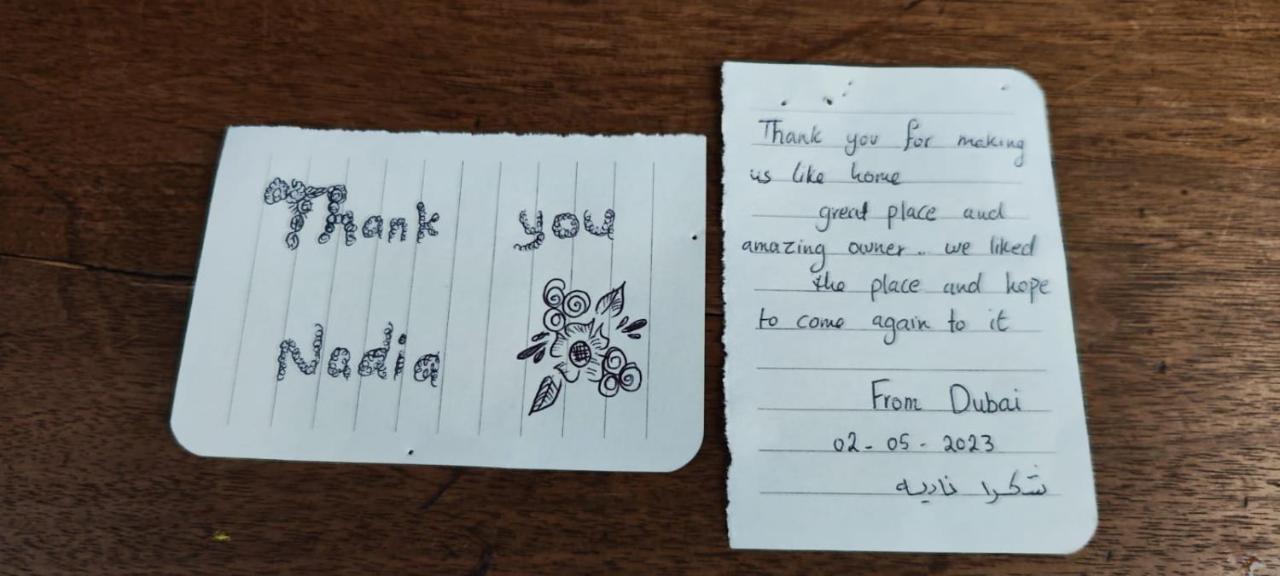 Thank you
Nadia
Thank you for making
us like home
great place and
amazing owner .. we liked
the place and hope
to come again to it
From Dubai
02-05-2023
شكرا ناديه